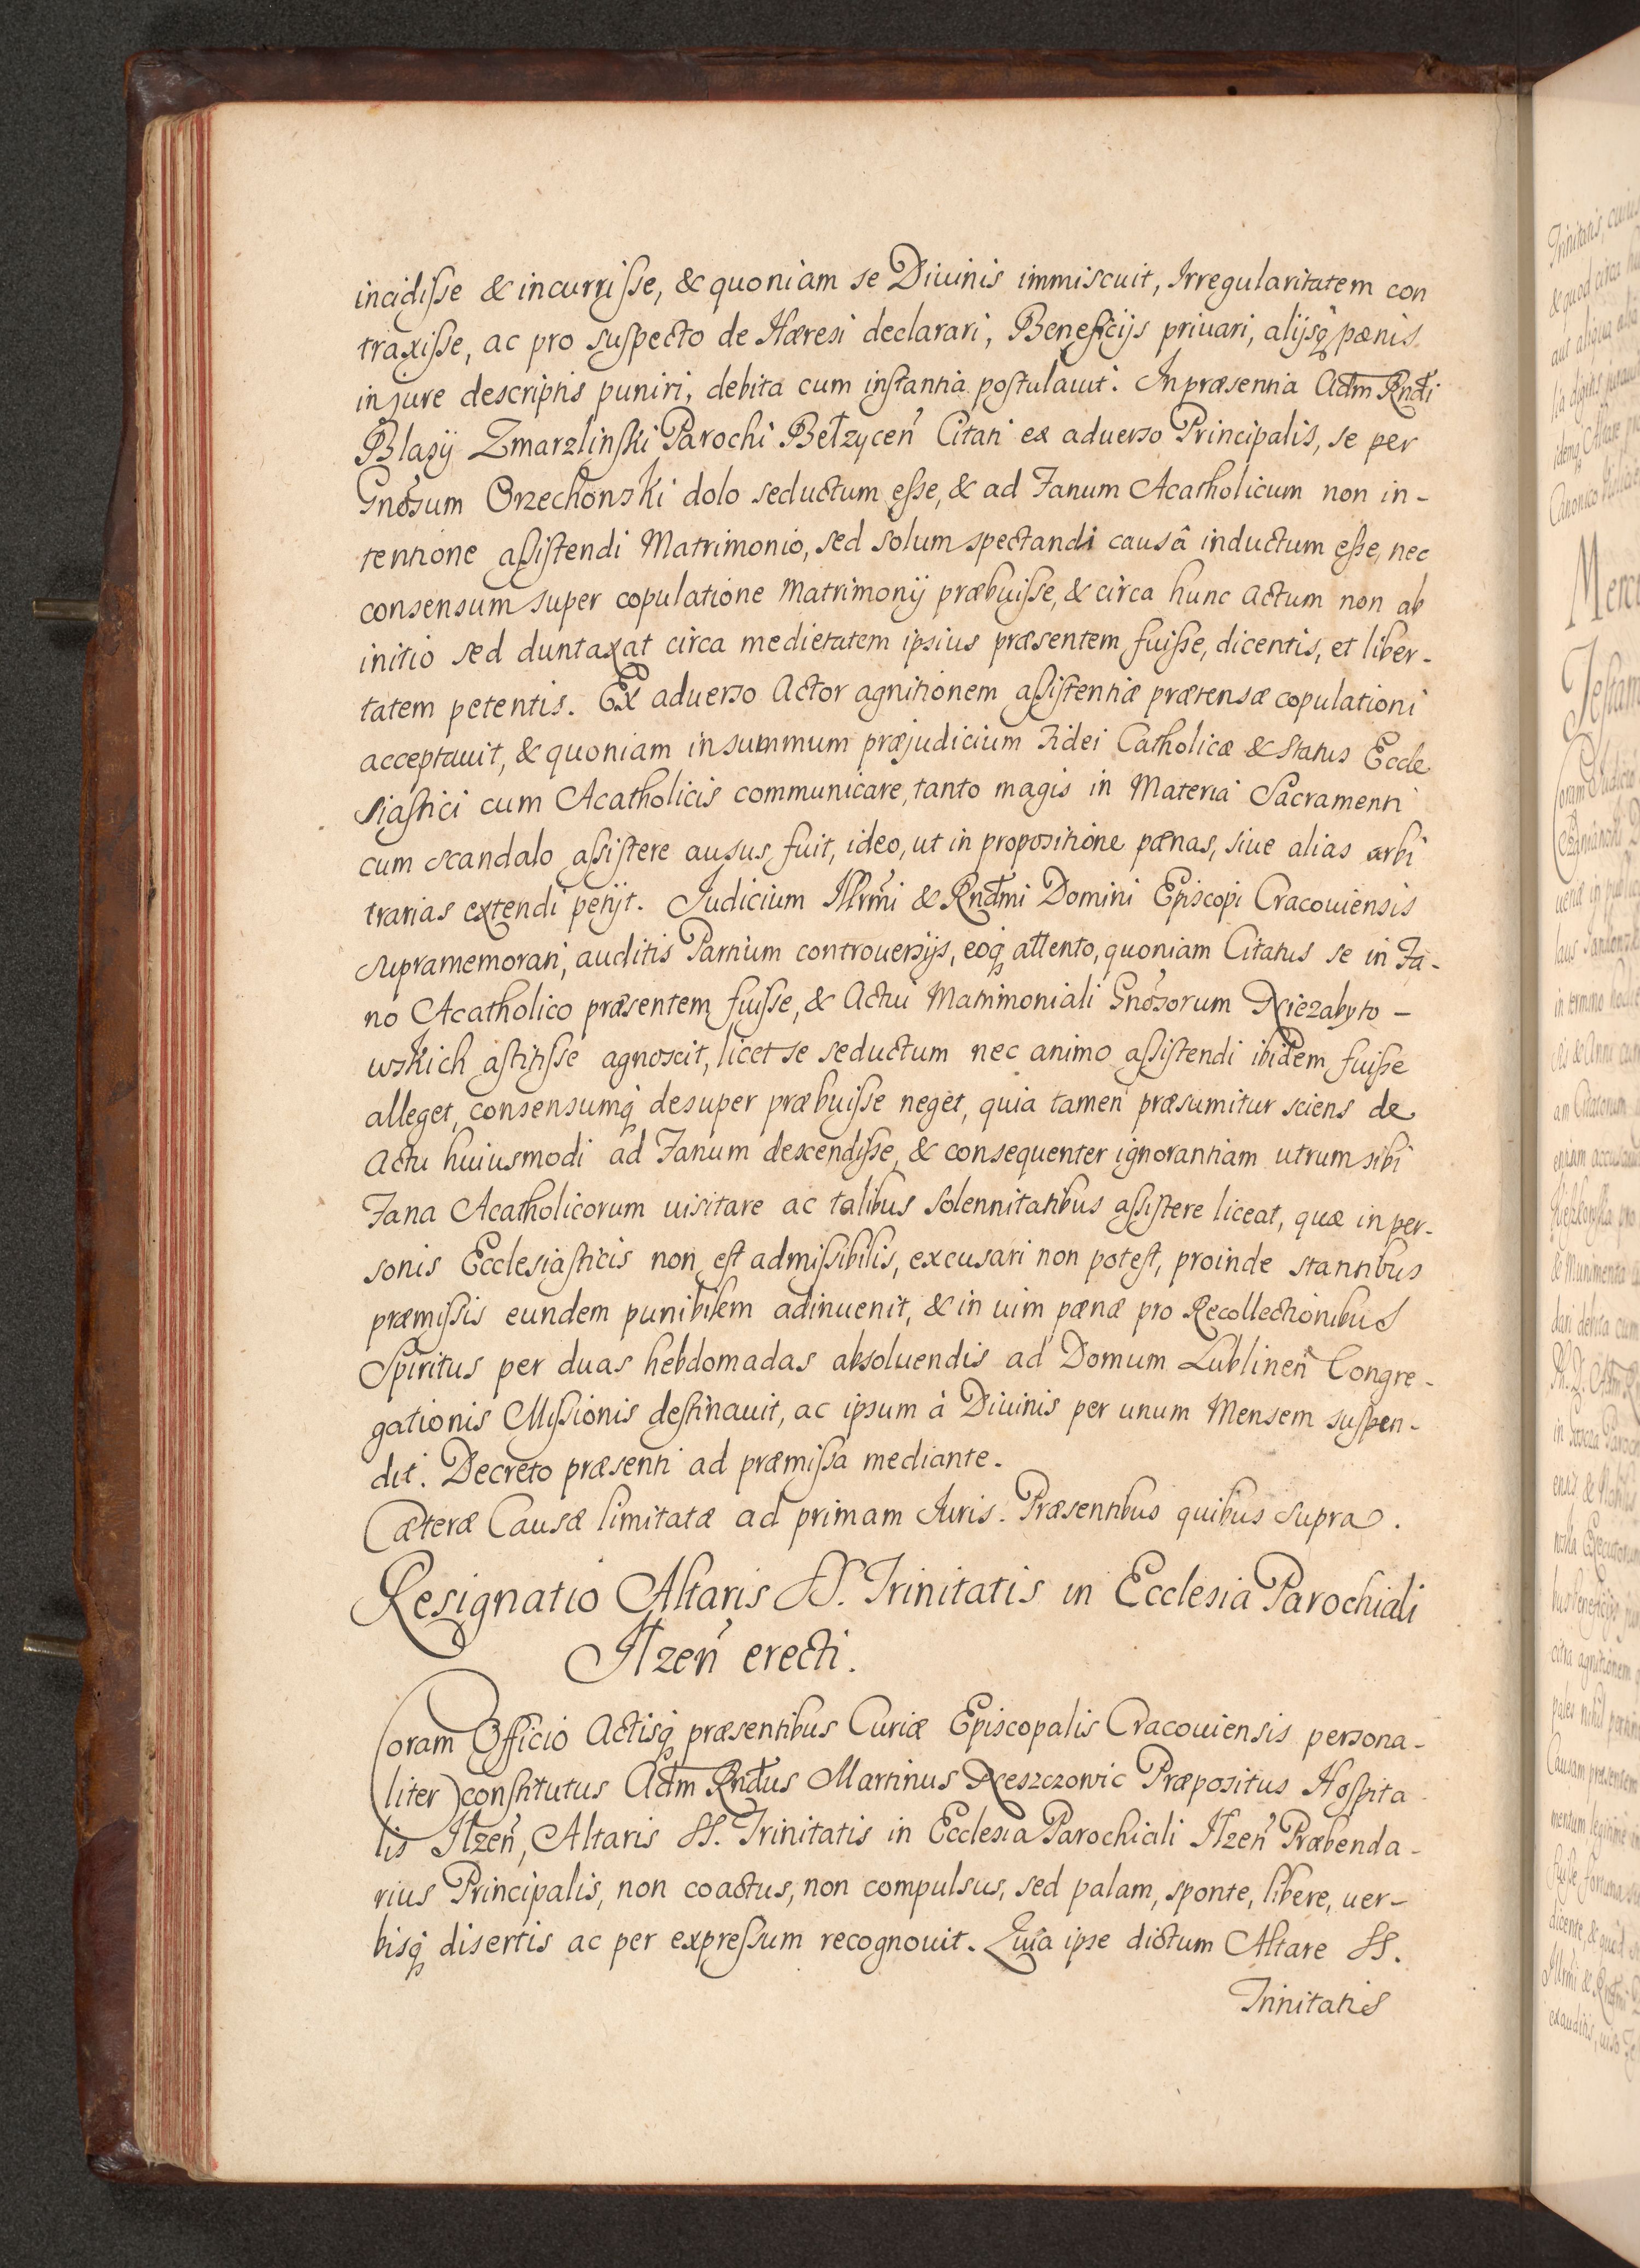 incidisse & incurrisse, & quoniam se Diuinis immiscuit, Irregularitatem con
traxisse, ac pro suspecto de Hæresi declarari, Beneficijs priuari, alijsq́ pœnis
in jure descriptis puniri, debita cum instantia postulauit. In præsentia Adm Rndi
Blasij Zmarzlinski Parochi Bełzyceń Citati ex aduerso Principalis, se per
Gnosum Orzechowski dolo seductum esse, & ad Fanum Acatholicum non in-
tentione assistendi Matrimonio, sed solum spectandi causâ inductum esse, nec
consensum super copulatione Matrimonij præbuisse, & circa hunc actum non ab
initio sed duntaxat circa medietatem ipsius præsentem fuisse, dicentis, et liber-
tatem petentis. Ex aduerso Actor agnitionem assistentiæ prætensæ copulationi
acceptauit, & quoniam in summum præjudicium Fidei Catholicæ & status Eccle
siastici cum Acatholicis communicare, tanto magis in Materia Sacramenti
cum scandalo assistere ausus fuit, ideo, ut in propositione pœnas, siue alias arbi
trarias extendi petijt. Judicium Illrmi & Rndmi Domini Episcopi Cracouiensis
supramemorati, auditis Partium controuersijs, eoq́ attento, quoniam Citatus se in Fa-
no Acatholico præsentem fuisse, & Actui Matrimoniali Gnosorum Niezabyto-
wskich astitisse agnoscit, licet se seductum nec animo assistendi ibidem fuisse
alleget, consensumq́ desuper præbuisse neget, quia tamen præsumitur sciens de
Actu huiusmodi ad Fanum descendisse, & consequenter ignorantiam utrum sibi
Fana Acatholicorum uisitare ac talibus solennitatibus assistere liceat, quæ in per-
sonis Ecclesiasticis non est admissibilis, excusari non potest, proinde stantibus
præmissis eundem punibilem adinuenit, & in uim pœnæ pro Recollectionibus
Spiritus per duas hebdomadas absoluendis ad Domum Lublineń Congre-
gationis Missionis destinauit, ac ipsum à Diuinis per unum Mensem suspen-
dit. Decreto præsenti ad præmissa mediante.
Cæteræ Causæ limitatæ ad primam Juris. Præsentibus quibus supra.
Resignatio Altaris SS. Trinitatis in Ecclesia Parochiali
Iłzeń erecti.
Coram Officio Actisq́ præsentibus Curiæ Episcopalis Cracouiensis persona-
liter constitutus Adm Rndus Martinus Neszczowic Præpositus Hospita-
lis Iłzeń, Altaris SS. Trinitatis in Ecclesia Parochiali Iłzeń Præbenda-
rius Principalis, non coactus, non compulsus, sed palam, sponte, libere, uer-
bisq́ disertis ac per expressum recognouit. Quia ipse dictum Altare SS.
Trinitatis